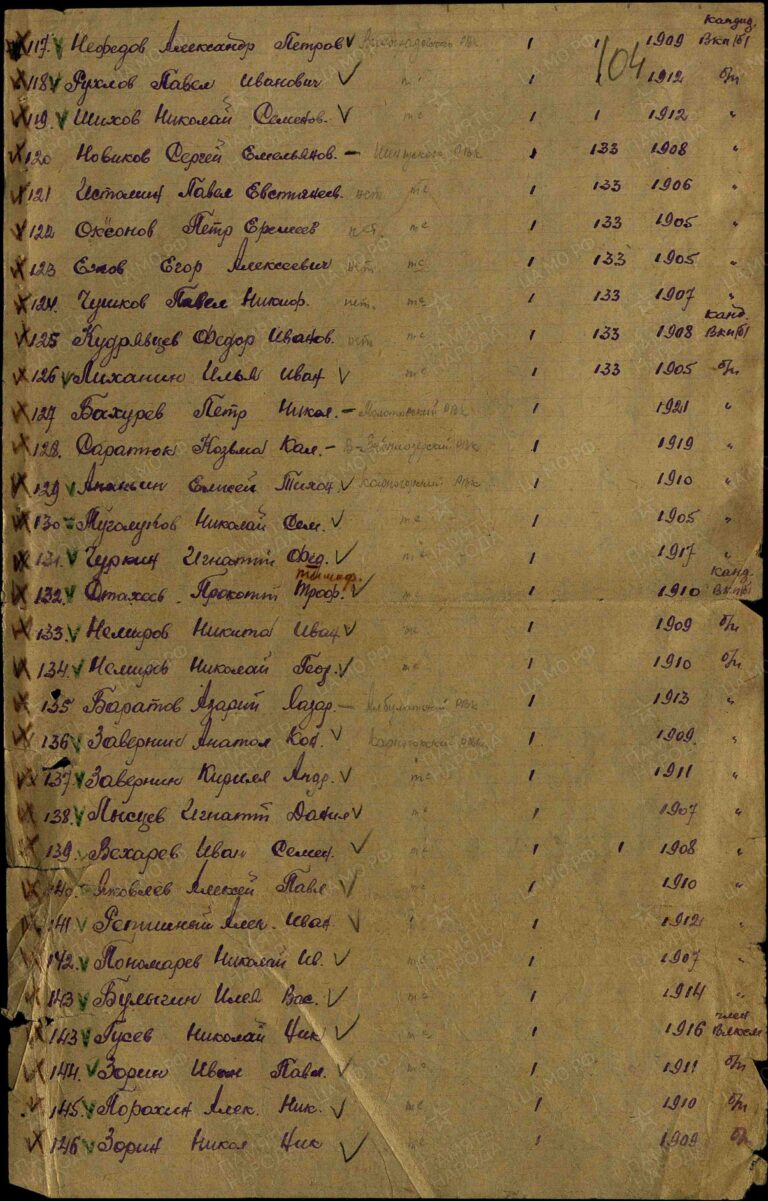 канд.
117. Нефедов Александр Петров РВК 1 1 1909 ВКП/б/
104
118 Рухлов Павел Иванович тс 1 1912 б/п
119. Шихов Николай Семенов. тс 1 1 1912 "
120 Новиков Сергей Емельянов. – РВК 1 133 1908 "
121 Истомин Павел Евстигнеев. тс 1 133 1906 "
122 Оксонов Петр Еремеев тс 1 133 1905 "
123 Егор Алексеевич тс 1 133 1905 "
124. Чушков Павел Никиф. тс 1 133 1907 "
канд.
125 Кудрявцев Федор Иванов. тс 1 133 1908 ВКП/б/
126 Лиханин Илья Иван тс 1 133 1905 б/п
127 Бахурев Петр Никол. – РВК 1 1921 "
128. Козьма Кал. – РВК 1 1919 "
129 Ананьин Елисей Тихон Карпогорский РВК 1 1910 "
130 Николай Сем. тс 1 1905 "
131. Чуркин Игнатий Фед. тс 1 1917 "
Тимоф. канд.
132. Прокопий Троф. тс 1 1910 ВКП/б/
133. Немиров Никита Иван тс 1 1909 б/п
134. Немиров Николай Геор. тс 1 1910 б/п
135 Баратов Азарий Лазар. – РВК 1 1913 "
136 Завернин Анатол Кон. Карпогорский РВК 1 1909. "
137. Завернин Кирилл Андр. тс 1 1911 "
138. Лысцев Игнатий Данил тс 1 1907 "
139. Вехарев Иван Семен. тс 1 1 1908 "
140. Яковлев Алексей Павл тс 1 1910 "
141 Алек. Иван тс 1 1912 "
142. Пономарев Николай Ив. тс 1 1907 "
143 Булыгин Вас. тс 1 1914 "
член
143 Гусев Николай Ник тс 1 1916 ВЛКСМ
144. Зорин Иван Павл. тс 1 1911 б/п
145. Порохин Алек. Ник. тс 1 1910 б/п
146 Зорин Никол Ник тс 1 1909 б/п